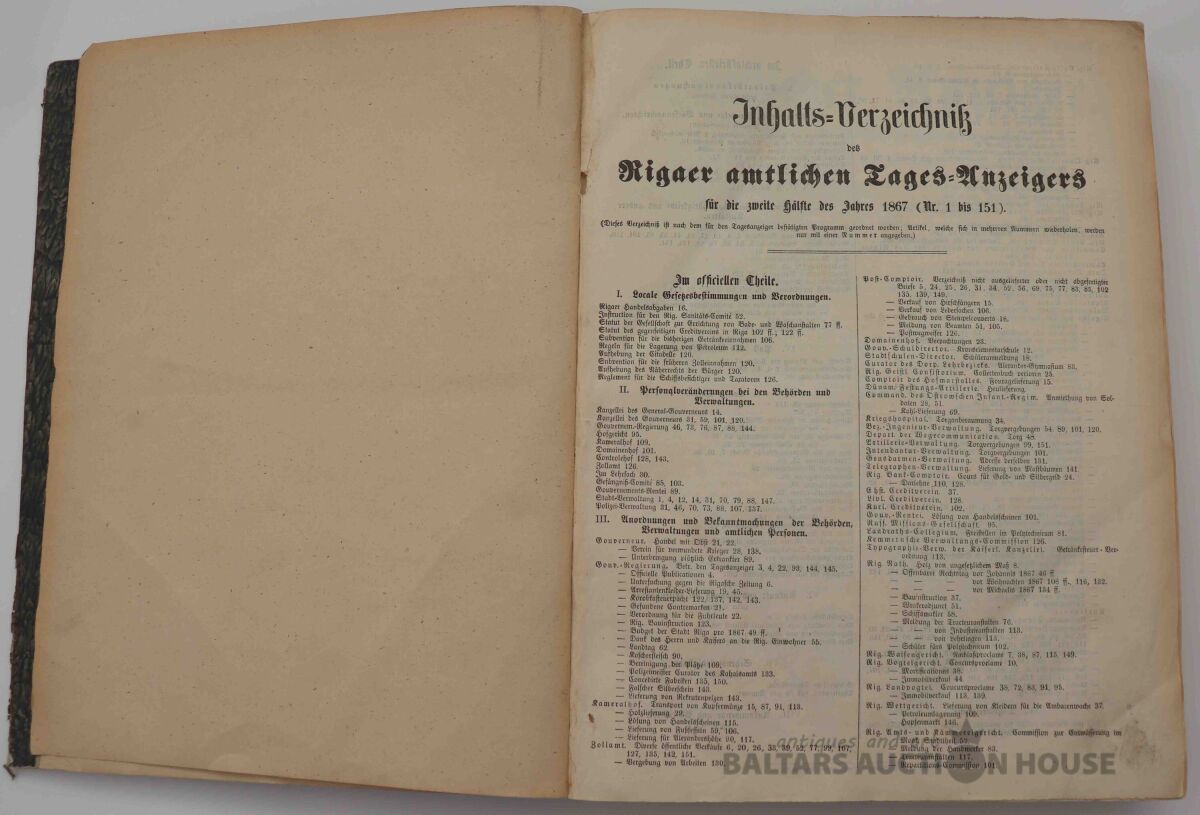 Inhalts=Verzeichniß
des
Rigaer amtlichen Tages=Anzeigers
für die zweite Hälfte des Jahres 1867 (Nr. 1 bis 151).
(Dieses Verzeichniß ist nach dem für den Tagesanzeiger bestätigten Programm geordnet worden; Artikel, welche sich in mehreren Nummern wiederholen, werden
nur mit einer Nummer angegeben.)
Im officiellen Theile.
I. Locale Gesetzesbestimmungen und Verordnungen.
Rigaer Handelsabgaben 16.
Instruction für den Rig. Sanitäts-Comité 52.
Statut der Gesellschaft zur Errichtung von Bade- und Waschanstalten 77 ff.
Statut des gegenseitigen Creditvereins in Riga 102 ff., 122 ff.
Subvention für die bisherigen Getränkeeinnahmen 106.
Regeln für die Lagerung von Petroleum 112.
Aufhebung der Citadelle 120.
Subvention für die früheren Zolleinnahmen 120.
Aufhebung des Näherrechts der Bürger 120.
Reglement für die Schiffsbesichtiger und Taxatoren 126.
II. Personalveränderungen bei den Behörden und
Verwaltungen.
Kanzellei des General-Gouverneurs 14.
Kanzellei des Gouverneurs 31, 59, 101, 120.
Gouvernem.-Regierung 46, 73, 76, 87, 88, 144.
Hofgericht 95.
Kameralhof 109.
Domainenhof 101.
Controlehof 128, 143.
Zollamt 126.
Im Lehrfach 30.
Gefängniß-Comité 85, 103.
Gouvernements-Rentei 89.
Stadt-Verwaltung 1, 4, 12, 14, 31, 70, 79, 88, 147.
Polizei-Verwaltung 31, 46, 70, 73, 88, 107, 137.
III. Anordnungen und Bekanntmachungen der Behörden,
Verwaltungen und amtlichen Personen.
Gouverneur. Handel mit Obst 21, 22.
— Verein für verwundete Krieger 28, 138.
— Unterbringung plötzlich Erkrankter 89.
Gouv.-Regierung. Betr. den Tagesanzeiger 3, 4, 22, 93, 144, 145.
— Officielle Publicationen 4.
— Untersuchung gegen die Rigasche Zeitung 6.
— Arrestantenkleider-Lieferung 19, 45.
— Korobkasteuerpacht 122, 137, 142, 143.
— Gefundene Contremarken 21.
— Verordnung für die Fuhrleute 22.
— Rig. Bauinstruction 123.
— Budget der Stadt Riga pro 1867 49 ff.
— Dank des Herrn und Kaisers an die Rig. Einwohner 55.
— Landtag 62.
— Koscherfleisch 90.
— Vereinigung der Plätze 109.
— Polizeimeister Curator des Kahalsamts 133.
— Concedirte Fabriken 135, 150.
— Falscher Silberschein 143.
— Lieferung von Rekrutenpelzen 143.
Kameralhof. Transport von Kupfermünze 15, 87, 91, 113.
— Holzlieferung 29.
— Lösung von Handelsscheinen 115.
— Lieferung von Fußfesseln 59, 106.
— Lieferung für Alexandershöhe 90, 117.
Zollamt. Diverse öffentliche Verkäufe 6, 20, 26, 33, 39, 52, 77, 99, 107,
127, 135, 142, 151.
— Vergebung von Arbeiten 130.
Post-Comptoir. Verzeichniß nicht ausgelieferter oder nicht abgefertigter
Briefe 5, 24, 25, 26, 31, 34, 52, 56, 69, 75, 77, 83, 85, 102
135, 139, 149.
— Verkauf von Hirschfängern 15.
— Verkauf von Ledersachen 106.
— Gebrauch von Stempelcouverts 18.
— Meldung von Beamten 51, 105.
— Postwegweiser 126.
Domainenhof. Verpachtungen 23.
Gouv.-Schuldirector. Kronselementarschule 12.
Stadtschulen-Director. Schüleranmeldung 18.
Curator des Dorp. Lehrbezirks. Alexander-Gymnasium 83.
Rig. Geistl. Consistorium. Collectenbuch verloren 25.
Comptoir des Hofmarstalles. Fouragelieferung 15.
Dünam. Festungs-Artillerie. Heulieferung.
Command. des Ostrowschen Infant.-Regim. Anmiethung von Sol-
daten 28, 51.
— Kohl-Lieferung 69.
Kriegshospital. Torganberaumung 34.
Bez.-Ingenieur-Verwaltung. Torgvergebungen 54, 89, 101, 120.
Depart. der Wegecommunication. Torg 48.
Artillerie-Verwaltung. Torgvergebungen 99, 151.
Intendantur-Verwaltung. Torgvergebungen 101.
Gensdarmen-Verwaltung. Adresse derselben 131.
Telegraphen-Verwaltung. Lieferung von Mastbäumen 141.
Rig. Bank-Comptoir. Cours für Gold- und Silbergeld 24.
— Darlehne 110, 128.
Ehst. Creditverein. 37.
Livl. Creditverein. 128.
Kurl. Creditverein. 102.
Gouv.-Rentei. Lösung von Handelsscheinen 101.
Russ. Missions-Gesellschaft. 95.
Landraths-Collegium. Freistellen im Polytechnicum 81.
Kemmernsche Verwaltungs-Commission 126.
Typographie-Verw. der Kaiserl. Kanzellei. Getränkesteuer-Ver-
ordnung 113.
Rig. Rath. Holz von ungesetzlichem Maß 8.
— Offenbarer Rechtstag vor Johannis 1867 46 ff
— — — vor Weihnachten 1867 108 ff., 116, 132.
— — — vor Michaelis 1867 134 ff.
— Bauinstruction 37.
— Wrakeradjunct 51.
— Schiffsmakler 58.
— Meldung der Tracteuranstalten 76.
— — von Industrieanstalten 113.
— — von Lehrlingen 115.
— Schüler fürs Polytechnicum 102.
Rig. Waisengericht. Nachlaßproclame 7, 38, 87, 115, 149.
Rig. Vogteigericht. Concursproclame 10.
— Mortificationes 38.
— Immobilverkauf 44.
Rig. Landvogtei. Concursproclame 38, 72, 83, 91, 95.
— Immobilverkauf 113, 139.
Rig. Wettgericht. Lieferung von Kleidern für die Ambarenwache 37.
— Petroleumlagerung 109.
— Hopfenmarkt 146.
Rig. Amts- und Kämmereigericht. Commission zur Entwässerung im
— Meldung der Handwerker 83.
— 117.
— Repartitions-Commission 101
antiques and
BALTARS AUCTION HOUSE